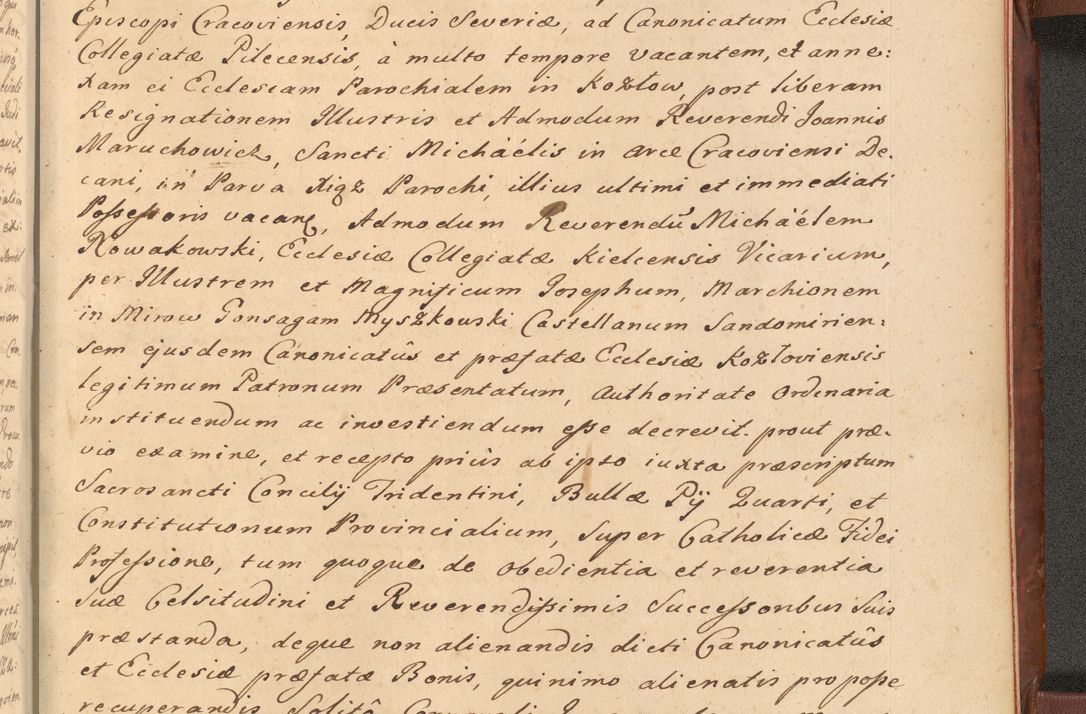 Episcopi Cracoviensis, Ducis Severiæ, ad Canonicatum Ecclesiæ
Collegiatæ Pilecensis, à multo tempore vacantem, et anne:
xam ei Ecclesiam Parochialem in Kozłow, post liberam
Resignationem Illustris et Admodum Reverendi Joannis
Maruchowicz, Sancti Michäélis in arce Cracoviensi De-
cani, in Parva Xigz Parochi, illius ultimi et immediati
Possessoris vacan, Admodum Reverendũ Michäélem
Nowakowski, Ecclesiæ Collegiatæ Kielcensis Vicarium,
per Illustrem et Magnificum Josephum, Marchionem
in Mirow Gonsagam Myszkowski Castellanum Sandomirien:
sem ejusdem Canonicatûs et præfatæ Ecclesiæ Kozłoviensis
legitimum Patronum Præsentatum, Authoritate Ordinaria
instituendum ac investiendum esse decrevit. prout præ-
vio examine, et recepto priùs ab ipso iuxta præscriptum
Sacrosancti Concilij Tridentini, Bullæ Pij Quarti, et
Constitutionum Provincialium, Super Catholicæ Fidei
Professione, tum quoque de Obedientia et reverentia
Suæ Celsitudini et Reverendissimis Successoribus Suis
præstanda, deque non alienandis dicti Canonicatûs
et Ecclesiæ præfatæ Bonis, quinimo alienatis pro posse
recuperandis Solitô